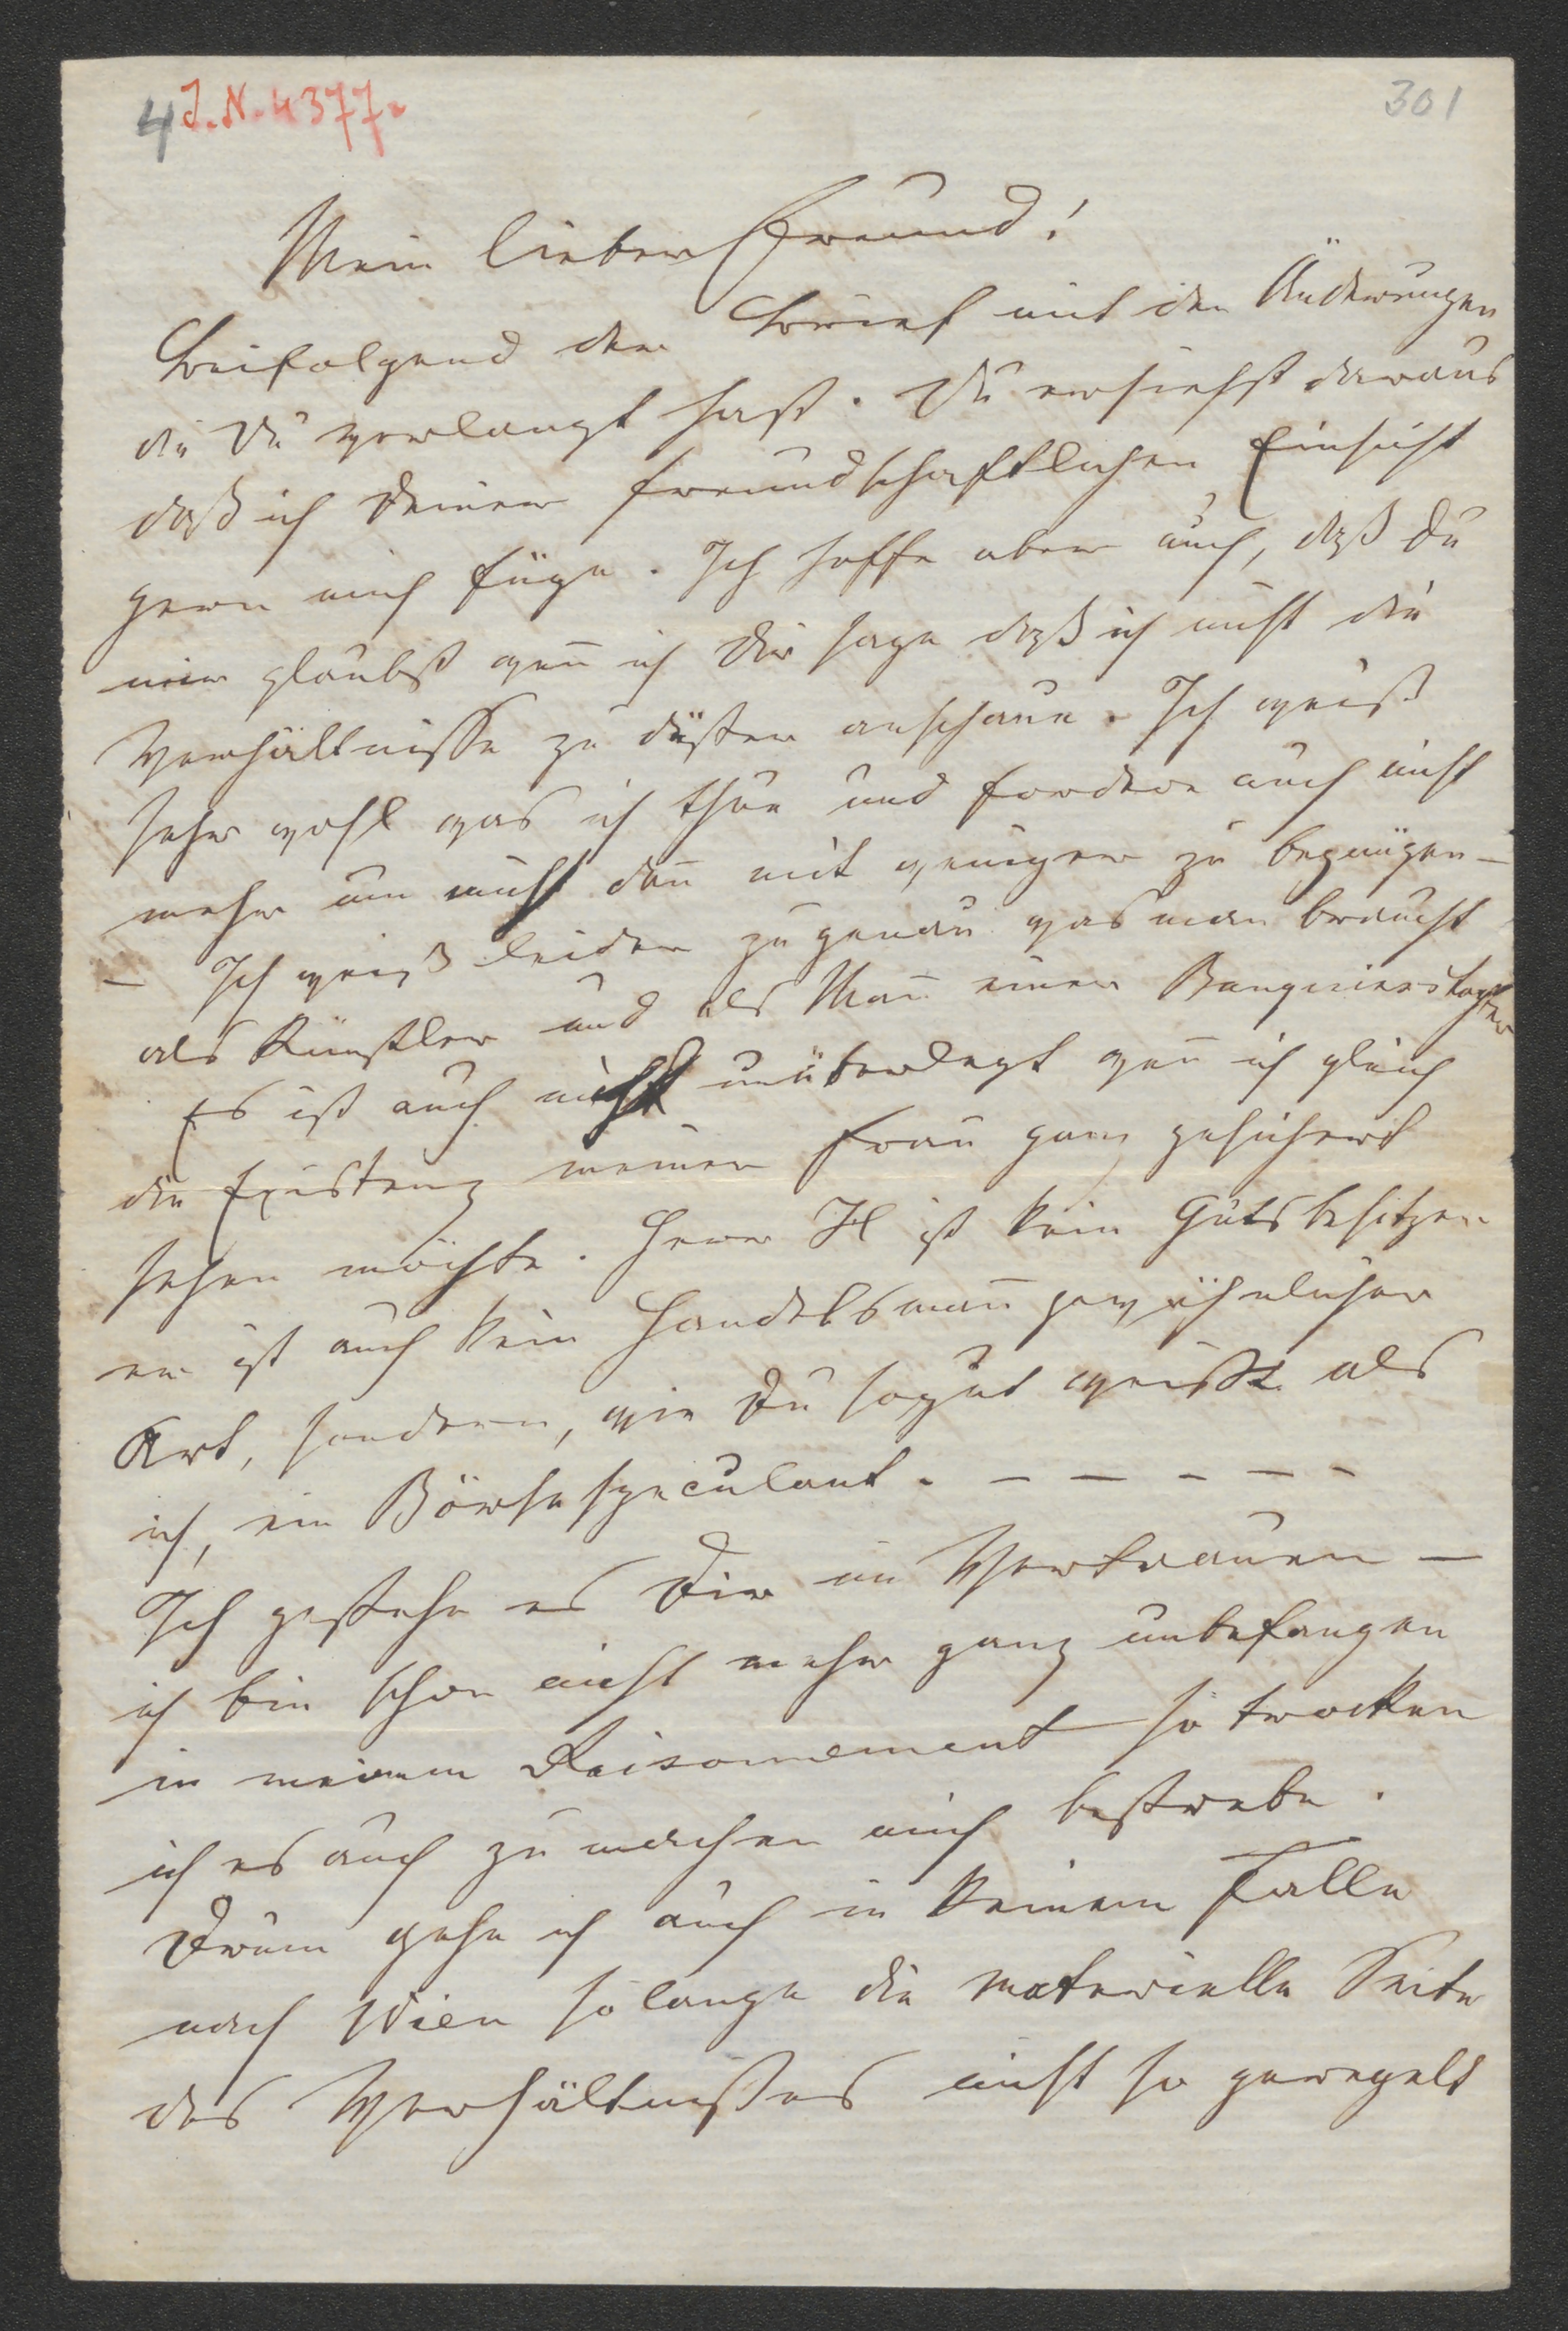 4 J.N. 4377.
301
Mein lieber Freund!
Beifolgend der Brief mit den Änderungen
die Du verlangt hast. Du ersiehst daraus
daß ich Deiner freundschaftlichen Einsicht
gern mich füge. Ich hoffe aber auch, daß Du
mir glaubst weñ ich Dir sage daß ich nicht die
Verhältnisse zu düster anschaue. Ich weiß
sehr wohl was ich thue und fordere auch nicht
mehr um mich dañ mit weniger zu begnügen –
– Ich weiß leider zu genau was man braucht
als Künstler und als Mañ einer Banquierstochter
Es ist auch nicht unüberlegt weñ ich gleich
die Existenz meiner Frau ganz gesichert
sehen möchte. Herr H ist kein Gutsbesitzer
er ist auch kein Handelsmañ gewöhnlicher
Art, sondern, wie Du so gut weißt als
ich, ein Börsespeculant. – – – – –
Ich gestehe es Dir im Vertrauen –
ich bin schon nicht mehr ganz unbefangen
in meinem Raisonnement so trocken
ich es auch zu machen mich bestrebe.
Drum gehe ich auch in keinem Falle
nach Wien so lange die materielle Seite
des Verhältnißes nicht so geregelt